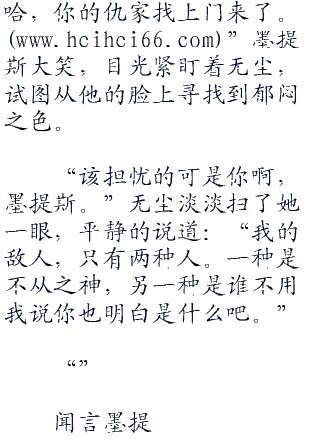 哈，你的仇家找上门来了。
(www.hcihci66.com)”墨提
斯大笑，目光紧盯着无尘，
试图从他的脸上寻找到郁闷
之色。
“该担忧的可是你啊，
墨提斯。”无尘淡淡扫了她
一眼，平静的说道：“我的
敌人，只有两种人。一种是
不从之神，另一种是谁不用
我说你也明白是什么吧。”
“”
闻言墨提